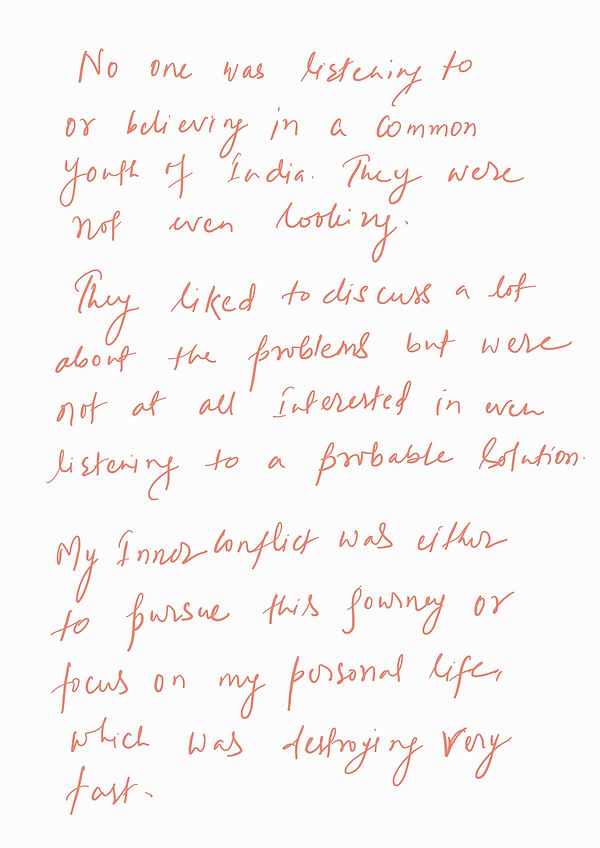 No one was listening to
or believing in a common
Youth of India. They were
not even looking.
They liked to discuss a lot
about the problems but were
not at all Interested in even
listening to a probable Solution.
My Inner conflict was either
to pursue this Journey or
focus on my personal life,
which was destroying very
fast.